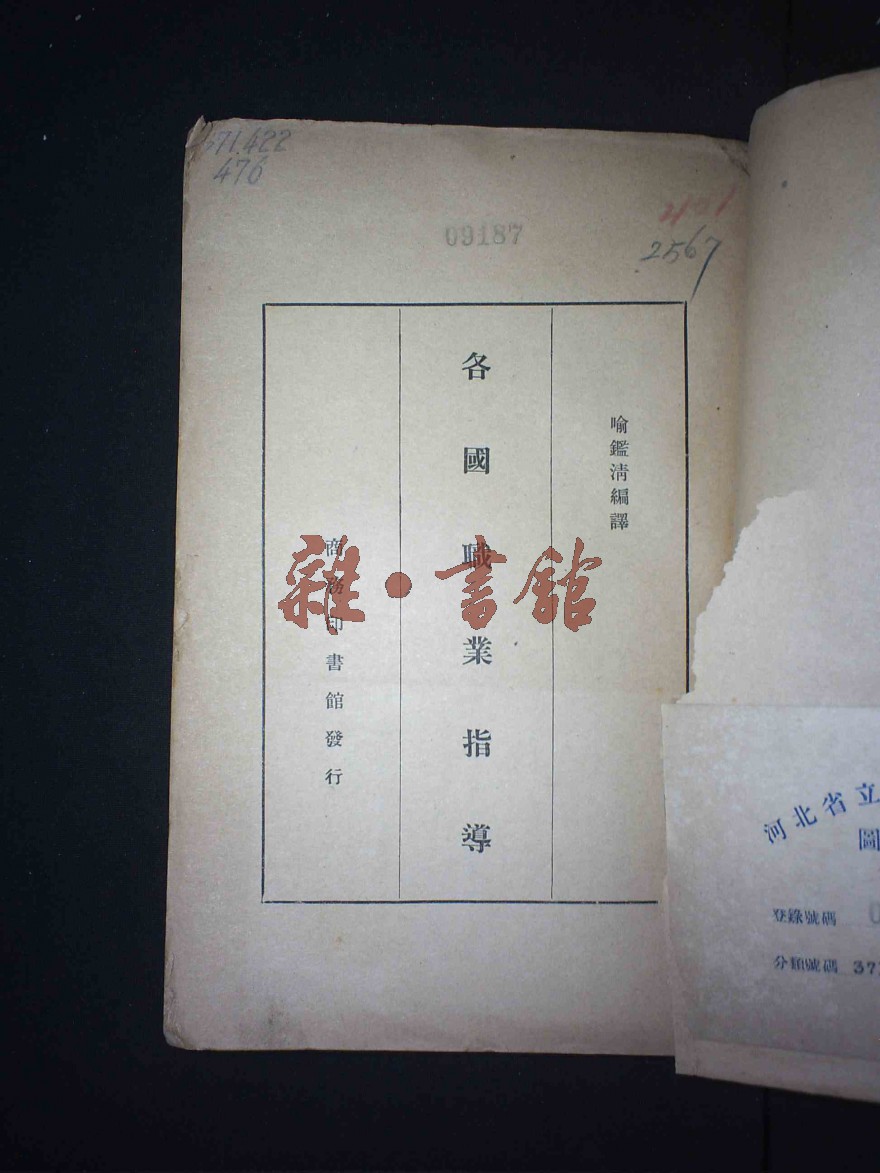 371.422
476
09187
401
2567
喻鑑淸編譯
各國職業指導
商務印書館發行
雜·書館
河北省立
圖
登錄號碼 0
分類號碼 37